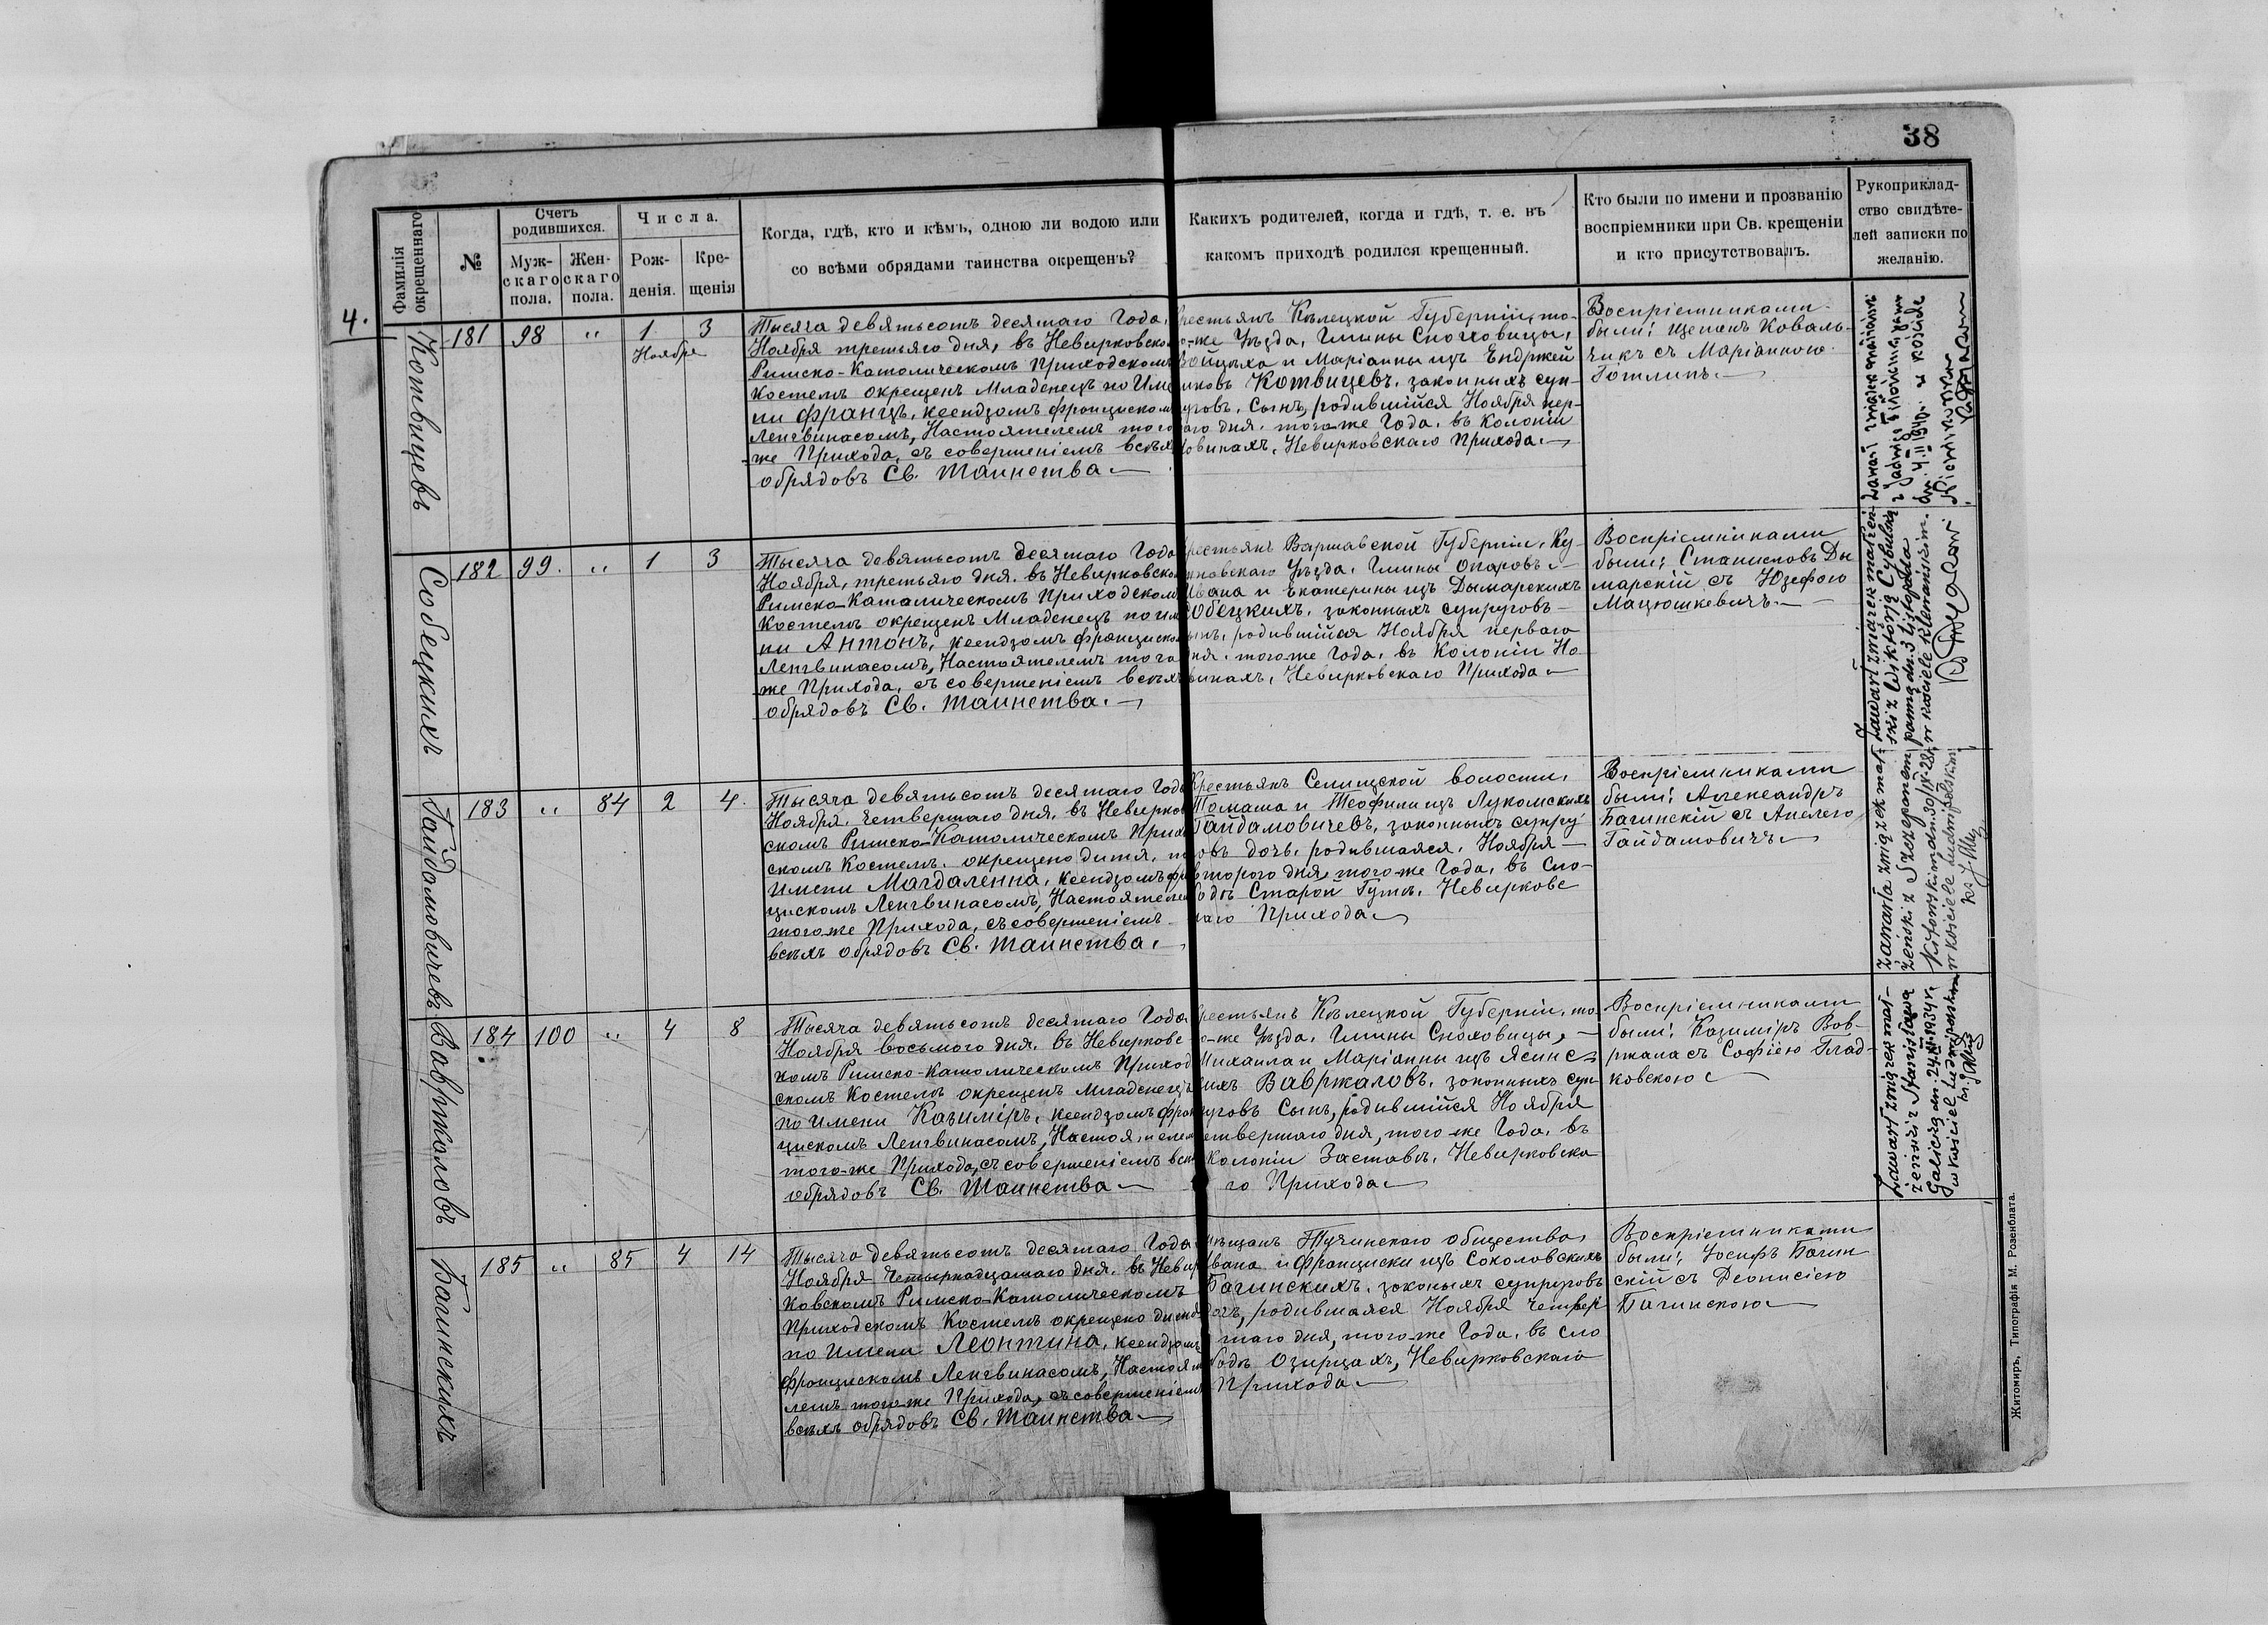 38
4.
Фамилія окрещеннаго
№
Счетъ родившихся.
Муж-
скаго
пола.
Жен-
скаго
пола.
Числа.
Рож-
денія.
Кре-
щенія
Когда, гдѣ, кто и кѣмъ, одною ли водою или
со всѣми обрядами таинства окрещенъ?
Какихъ родителей, когда и гдѣ, т. е. въ
какомъ приходѣ родился крещенный.
Кто были по имени и прозванію
воспріемники при Св. крещеніи
и кто присутствовалъ.
Рукоприклад-
ство свидѣте-
лей записки по
желанію.
Котвицевъ
181 98 " 1 3
Ноября
Тысяча девятьсотъ десятаго Года,
Ноября третьяго дня, въ Невирковско
Римско-Католическомъ Приходскомъ
Костелѣ окрещенъ Младенецъ по Име
ни Францъ, ксендзомъ Францискомъ
Ленгвинасомъ, Настоятелемъ того
же Прихода, съ совершеніемъ всѣхъ
обрядовъ Св. Таинства
рестьянъ Кѣлецкой Губерніи, то-
о-же Уѣзда, Гмины
Войцѣха и Маріанны изъ Енджей
иковъ Котвицевъ, законныхъ суп-
уговъ, Сынъ, родившійся Ноября пер-
аго дня, того-же Года, въ Колоніи
овинахъ, Невирковскаго Прихода
Воспріемниками
были: Щепанъ Коваль-
чикъ съ Маріанною
Готлипъ
Собецкихъ
182 99. " 1 3
Тысяча девятьсотъ десятаго Года
Ноября, третьяго дня, въ Невирковско
Римско-Католическомъ Приходском
Костелѣ окрещенъ Младенецъ по им
ни Антонъ, ксендзомъ Франциско
Ленгвинасомъ, Настоятелемъ того
же Прихода, съ совершеніемъ всѣхъ
обрядовъ Св. Таинства.
рестьянъ Варшавской Губерніи, Ку-
новскаго Уѣзда, Гмины Опоровъ
Ивана и Екатерины изъ Дымарскихъ
Собецкихъ, законныхъ супруговъ
ынъ, родившійся Ноября перваго
ня, того-же Года, въ Колоніи Но
винахъ, Невирковскаго Прихода
Воспріемниками
были: Станиславъ Ды
марскій съ Юзефою
Мацюшкевичъ
Гайдамовичевъ
183 " 84 2 4.
Тысяча девятьсотъ десятаго Года
Ноября, четвертаго дня, въ Невирков
скомъ Римско-Католическомъ Прихо
скомъ Костелѣ, окрещено дитя, п
имени Магдаленна, ксендзомъ Фра
цискомъ Ленгвинасомъ, Настоятеле
того-же Прихода, съ совершеніемъ
всѣхъ обрядовъ Св. Таинства.
Крестьянъ Селищской волости,
Томаша и Теофили изъ Лукомскихъ
Гайдамовичевъ, законныхъ супру
овъ дочь, родившаяся, Ноября
второго дня, того-же Года, въ Сло-
одѣ Старой Гутѣ, Невирковс
аго Прихода
Воспріемниками
были: Александръ
Багинскій съ Анелею
Гайдамовичъ
Вавржаловъ
184 100 " 4 8
Тысяча девятьсотъ десятаго Года
Ноября восьмого дня, въ Невирковс
комъ Римско-Католическомъ Приход
скомъ Костелѣ окрещенъ младенецъ
по имени Казиміръ, ксендзомъ Фран
цискомъ Ленгвинасомъ, Настоятелем
того-же Прихода, съ совершеніемъ всѣ
обрядовъ Св. Таинства
рестьянъ Кѣлецкой Губерніи, то
о-же Уѣзда, Гмины
Михаила и Маріанны изъ Ясинс
ихъ Вавржаловъ, законныхъ суп
уговъ Сынъ, родившійся Ноября
етвертаго дня, того-же Года, въ
Колоніи Заставѣ, Невирковска
го Прихода
Воспріемниками
были: Казиміръ Вов-
ржала съ Софіею Глад-
ковскою
Багинскихъ
185 " 85 4 14
Тысяча девятьсотъ десятаго Года
Ноября Четырнадцатаго дня, въ Невир
ковскомъ Римско-Католическомъ
Приходскомъ Костелѣ окрещено дитя
по имени Леонтина, ксендзомъ
Францискомъ Ленгвинасомъ, Настоят
лемъ того-же Прихода, съ совершеніемъ
всѣхъ обрядовъ Св. Таинства
ѣщанъ Тучинскаго общества,
вана и Франциски изъ Соколовскихъ
Багинскихъ, законныхъ супруговъ
дочь, родившаяся Ноября четвер
таго дня, того-же Года, въ сло
бодѣ Озирцахъ, Невирковскаго
Прихода
Воспріемниками
были: Іосифъ Багин
скій съ Деонисіею
Багинскою
Zawarł związek małżeń-
ski z Wiktorją Cybulską
panną dn. 3 listopada
w kościele
Zawarła związek mał-
żeński z Szczęsnym
dn. 30/IX-28 r.
w kościele Ludwipolskim
Ks.
Zawarł związek mał-
żeński z Stanisławą
Galicką dn. 1934 r.
w kościele Ludwipolskim
Житомиръ, Типографія М. Розенблата.